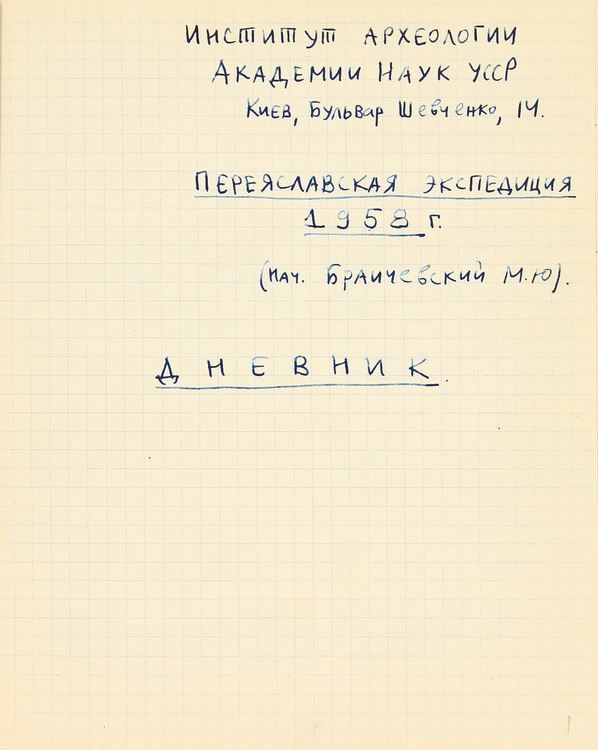 Институт Археологии
Академии Наук УССР
Киев, Бульвар Шевченко, 14.
Переяславская экспедиция
1958 г.
(нач. Брайчевский М.Ю).
Дневник.